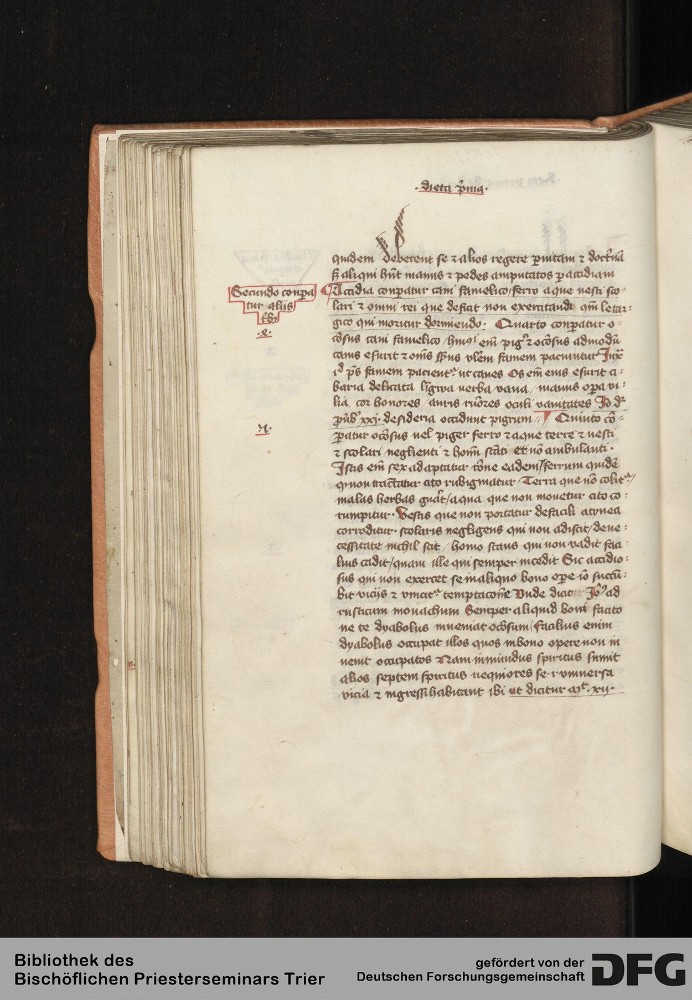 ·dieta p̄ma·
quidem deberent se ⁊ alios regere p̄ vitam ⁊ doct'nā
s; aliqui hn̄t manus ⁊ pedes amputatos p̄ accidiam
Secundo conpa
tur aliis
·e·
Accidia conparatur cani famelico / ferro aque vesti sco-
lari ⁊ omni rei que deficit non exercitando qm̄ letar-
gico qui moritur dormiendo· Quarto conparatur o-
cōsus cani famelico em̄ pig' ⁊ ocōsus admodū
canis esurit ⁊ om̄s famem paciuntur Jux
famem ut canes Os em̄ eius esurit ci-
baria delicata ligwa verba vana / manus opa vi-
lia cor honores auris ruōres oculi vanitates
·xxj· desideria occidunt pigrum Quinto cō-
·4·
paratur ocōsus vel piger ferro ⁊ aque terre ⁊ vesti
⁊ scolari neglienti ⁊ hom̄ stāti et nō ambulanti·
Istis em̄ sex adaptatur rōne eadem / ferrum quidē
qn̄ non tractatur cito rubigmatur Terra que nō colit'
malas herbas / aqua que non movetur cito co-
rumpitur· Vestis que non portatur defacili atynea
corroditur· scolaris negligens qui non adiscit / dene-
cessitate nichil scit / homo stans qui non vadit faci-
lius cadit / quam ille qui semper incedit Sic accidio-
sus qui non exercet se in aliquo bono ope io succū-
bit viciis ⁊ vincit' temptacōne Vnde dicit Jo' ad
rusticum monachum Semper aliquid boni facito
ne te dyabolus inveniat ocōsum / facilius enim
dyabolus occupat illos quos in bono opere non in
venit occupatos Nam inmundus spiritus sumit
alios septem spiritus nequiores se· i· universa
vicia ⁊ ingressi habitant ibi ut dicitur mt· xij·
Bibliothek des
Bischöflichen Priesterseminars Trier
gefördert von der
Deutschen Forschungsgemeinschaft
DFG